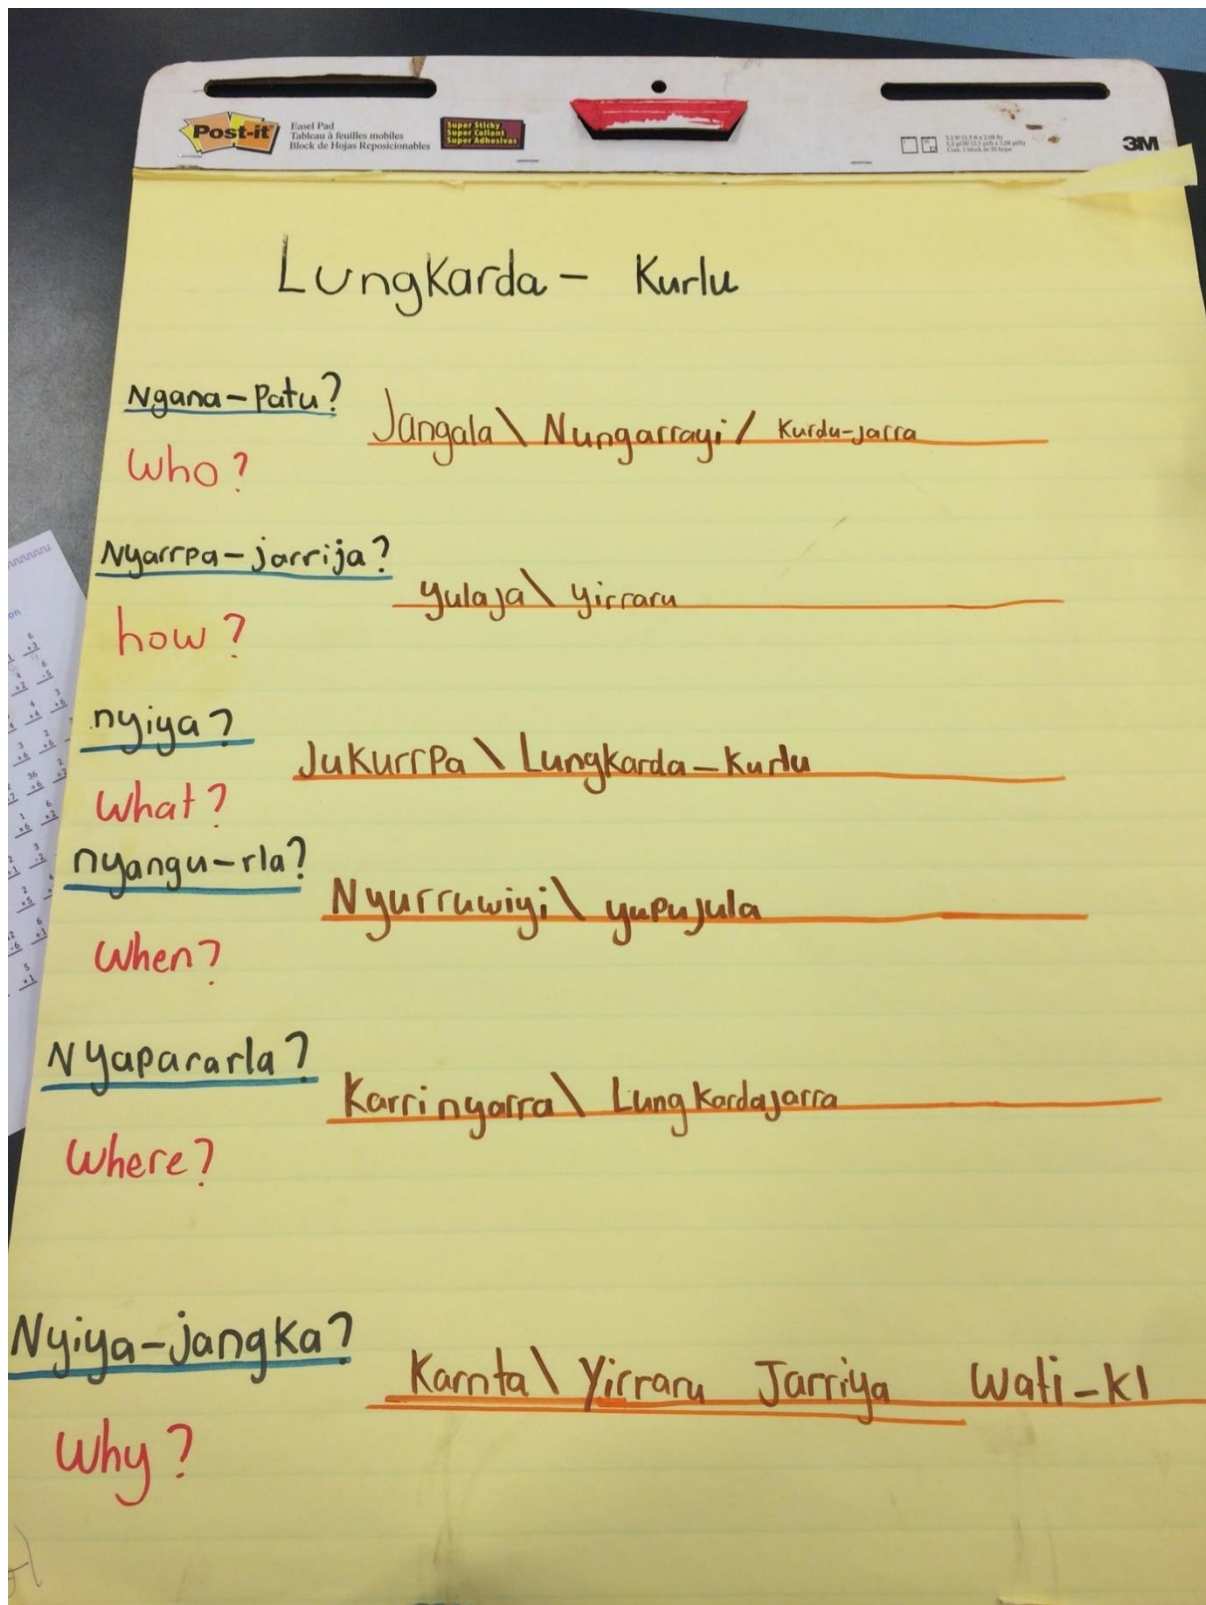 Post-it
Easel Pad
Tableau à feuilles mobiles
Block de Hojas Reposicionables
Super Sticky
Super Collant
Super Adhesivas
3M
Lungkarda - Kurlu
Ngana-Patu?
Jangala \ Nungarrayi / Kurdu-jarra
Who?
Nyarrpa-jarrija?
yulaja \ yirraru
how?
nyiya?
JuKurrPa \ Lungkarda-Kurlu
What?
nyangu-rla?
Nyurruwiyi \ yupujula
When?
Nyapararla?
Karrinyarra \ Lungkardajarra
Where?
Nyiya-jangka?
Karnta \ Yirraru Jarriya Wati-KI
Why?